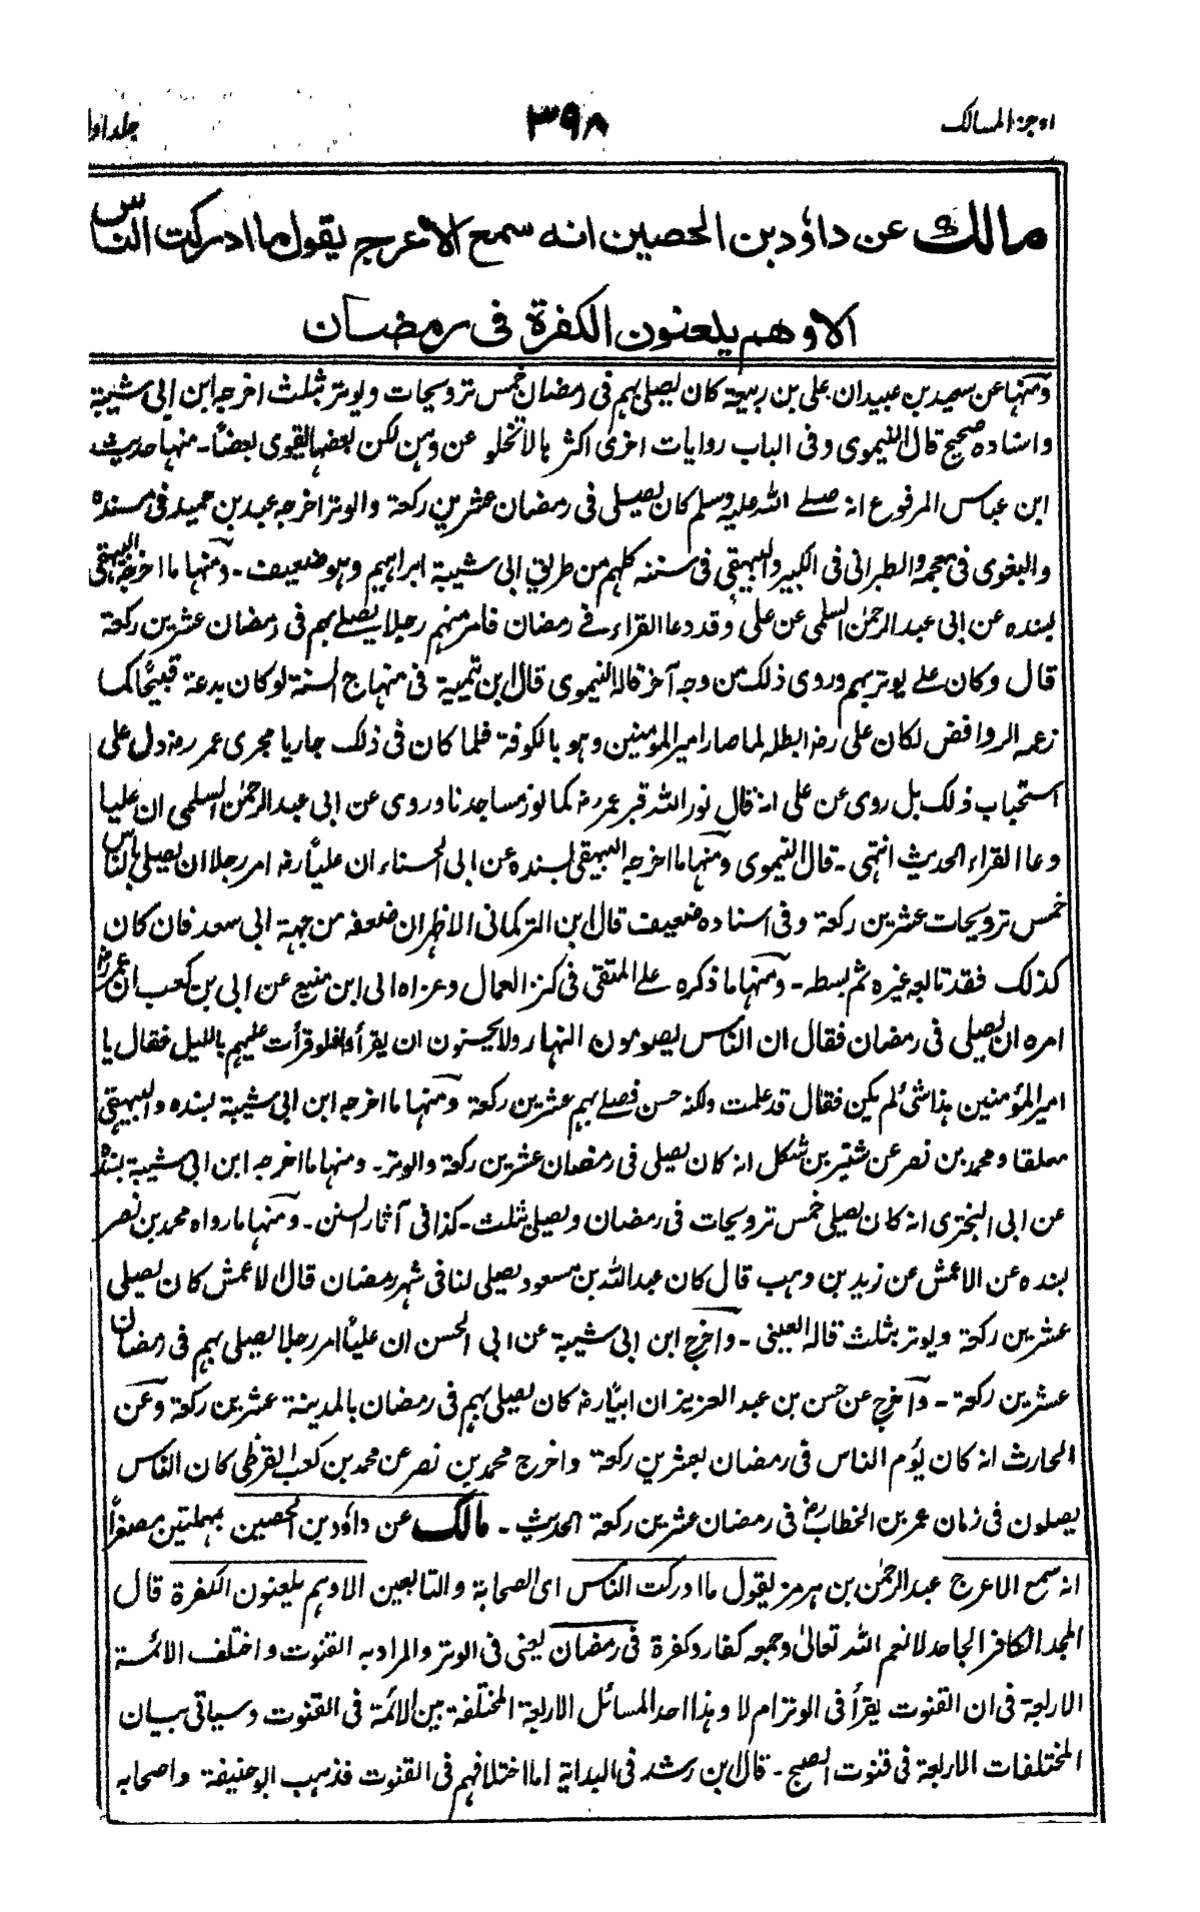 اوجز المسالك
٣٩٨
جلد اول
مالك عن داؤد بن الحصين انه سمع الاعرج يقول ما ادركت الناس
الا وهم يلعنون الكفرة فى رمضان
ومنها عن سعيد بن عبيد ان على بن ربيعة كان يصلى بهم فى رمضان خمس ترويحات ويوتر بثلث اخرجه ابن ابى شيبة
واسناده صحيح قال النيموى وفى الباب روايات اخرى اكثرها لا تخلو عن وهن لكن بعضها يقوى بعضاً۔ منها حديث
ابن عباس المرفوع انه صلے الله عليه وسلم كان يصلى فى رمضان عشرين ركعة والوتر اخرجه عبد بن حميد فى مسنده
والبغوى فى معجمه والطبرانى فى الكبير والبيهقى فى سننه كلهم من طريق ابى شيبة ابراهيم وهو ضعيف۔ ومنها ما اخرجه البيهقى
بسنده عن ابى عبد الرحمٰن السلمى عن على وقد دعا القراء فے رمضان فامر منهم رجلا يصلے بهم فى رمضان عشرين ركعة
قال وكان علے يوتر بهم وروى ذلك من وجه آخر قاله النيموى قال ابن تيمية فى منهاج السنة لو كان بدعة قبيحًا كما
زعمه الروافض لكان على رضه ابطله لما صار امير المؤمنين وهو بالكوفة فلما كان فى ذلك جاريا مجرى عمر رضه دل على
استحباب ذلك بل روى عن على انه قال نور الله قبر عمر رضه كما نور مساجدنا وروى عن ابى عبد الرحمٰن السلمى ان عليا
دعا القراء الحديث انتهى۔ قال النيموى ومنها ما اخرجه البيهقى بسنده عن ابى الحسناء ان علياً رضه امر رجلا ان يصلى بالناس
خمس ترويحات عشرين ركعة وفى اسناده ضعيف قال ابن التركمانى الاظهر ان ضعفه من جهة ابى سعد فان كان
كذلك فقد تابعه غيره ثم بسطه۔ ومنها ما ذكره علے المتقى فى كنز العمال وعزاه الى ابن منيع عن ابى بن كعب ان عمر رض
امره ان يصلى فى رمضان فقال ان الناس يصومون النهار ولا يحسنون ان يقرأوا فلو قرأت عليهم بالليل فقال يا
امير المؤمنين هذا شئ لم يكن فقال قد علمت ولكنه حسن فصلے بهم عشرين ركعة ومنها ما اخرجه ابن ابى شيبة بسنده والبيهقى
معلقا ومحمد بن نصر عن شتير بن شكل انه كان يصلى فى رمضان عشرين ركعة والوتر۔ ومنها ما اخرجه ابن ابى شيبة بسنده
عن ابى البخترى انه كان يصلى خمس ترويحات فى رمضان ويصلى ثلث۔ كذا فى آثار السنن۔ ومنها ما رواه محمد بن نصر
بسنده عن الاعمش عن زيد بن وهب قال كان عبد الله بن مسعود يصلى لنا فى شهر رمضان قال الاعمش كان يصلى
عشرين ركعة ويوتر بثلث قاله العينى۔ واخرج ابن ابى شيبة عن ابى الحسن ان علياً امر رجلا يصلى بهم فى رمضان
عشرين ركعة۔ واخرج عن حسن بن عبد العزيز ان ابيًا رضه كان يصلى بهم فى رمضان بالمدينة عشرين ركعة وعن
الحارث انه كان يؤم الناس فى رمضان بعشرين ركعة واخرج محمد بن نصر عن محمد بن كعب القرظى كان الناس
يصلون فى زمان عمر بن الخطاب رض فى رمضان عشرين ركعة الحديث۔ مالك عن داؤد بن الحصين بمهملتين مصغراً
انه سمع الاعرج عبد الرحمٰن بن هرمز يقول ما ادركت الناس اى الصحابة والتابعين الا وهم يلعنون الكفرة قال
المجد الكافر الجاحد لانعم الله تعالىٰ وجمعه كفار وكفرة فى رمضان يعنى فى الوتر والمراد به القنوت واختلف الائمة
الاربعة فى ان القنوت يقرأ فى الوتر ام لا وهذا احد المسائل الاربعة المختلفة بين الائمة فى القنوت وسياتى بيان
المختلفات الاربعة فى قنوت الصبح۔ قال ابن رشد فى البداية اما اختلافهم فى القنوت فذهب ابو حنيفة واصحابه